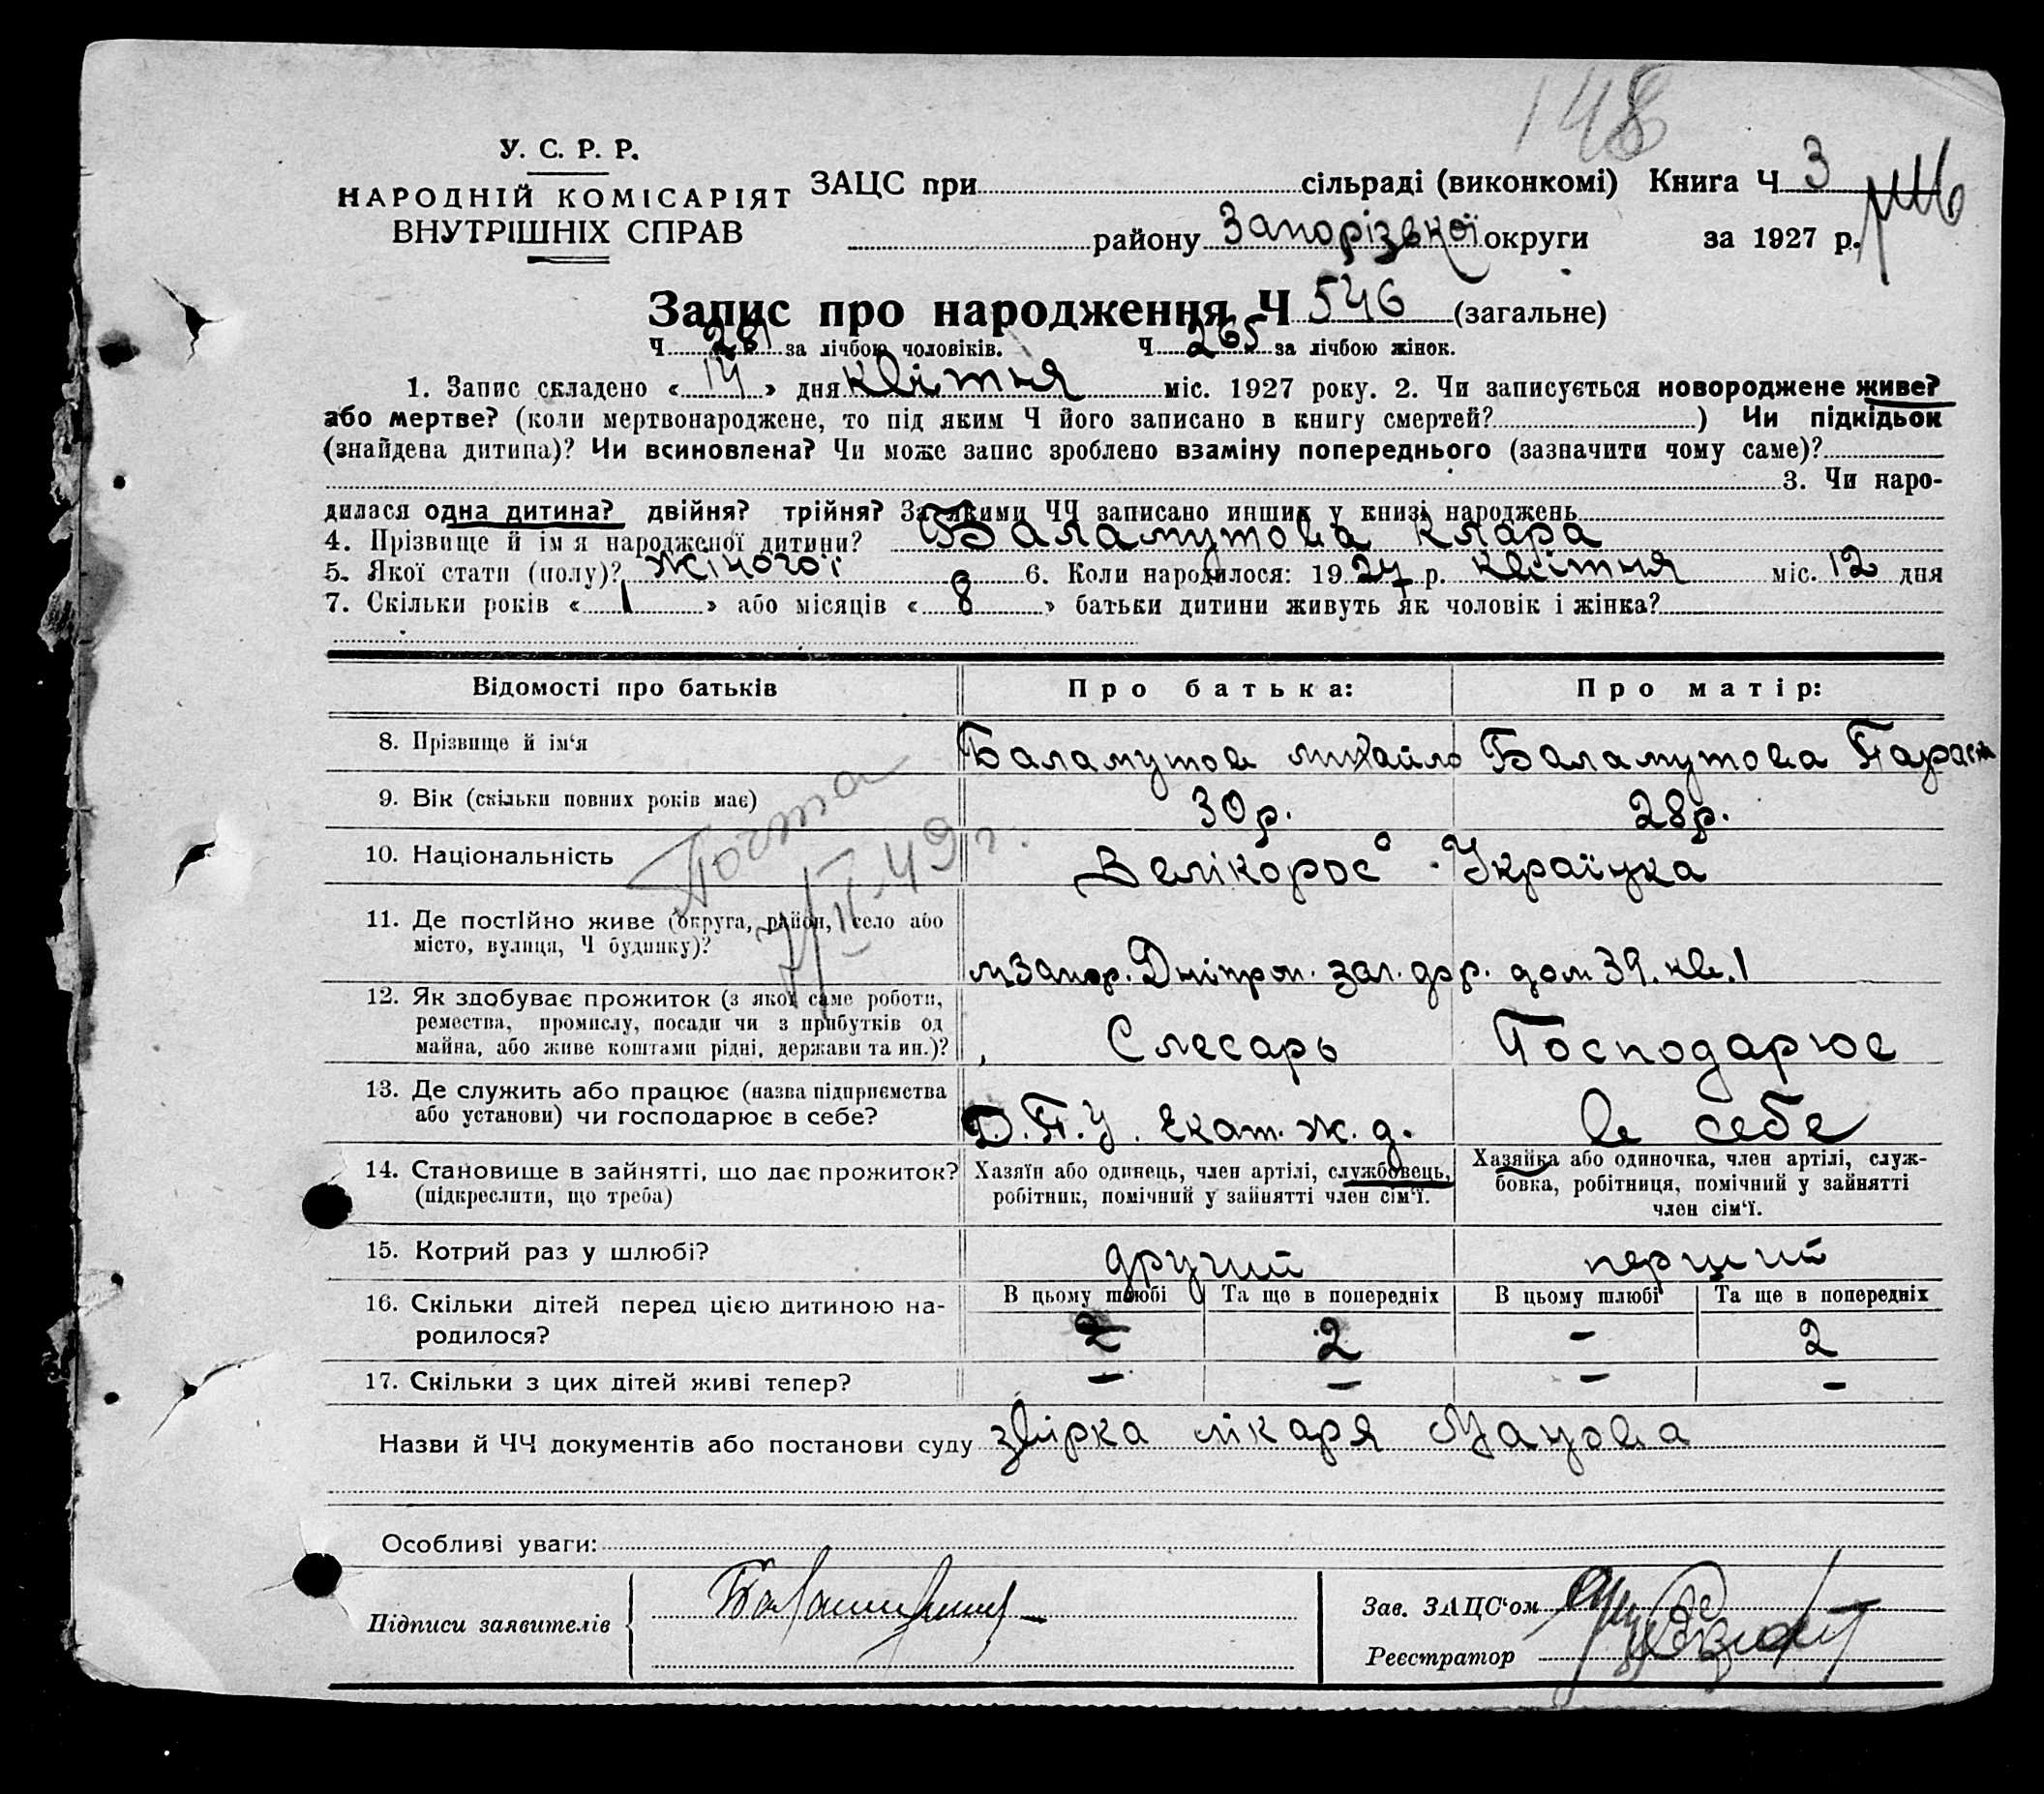 148
У. С. Р. Р.
НАРОДНІЙ КОМІСАРІЯТ
ВНУТРІШНІХ СПРАВ
ЗАЦС при сільраді (виконкомі) Книга Ч 3
району Запорізької округи за 1927 р.
Запис про народження Ч 546 (загальне)
Ч 281 за лічбою чоловіків. Ч 265 за лічбою жінок.
1. Запис складено «14» дня квітня міс. 1927 року. 2. Чи записується новороджене живе?
або мертве? (коли мертвонароджене, то під яким Ч його записано в книгу смертей? ) Чи підкідьок
(знайдена дитина)? Чи всиновлена? Чи може запис зроблено взаміну попереднього (зазначити чому саме)?
3. Чи наро-
дилася одна дитина? двійня? трійня? За якими ЧЧ записано инших у книзі народжень
4. Прізвище й ім'я народженої дитини? Баламутова Клара
5. Якої стати (полу)? жіночої 6. Коли народилося: 1927 р. квітня міс. 12 дня
7. Скільки років «1» або місяців «8» батьки дитини живуть як чоловік і жінка?
Відомості про батьків Про батька: Про матір:
8. Прізвище й ім'я Баламутов Михайло Баламутова Параск
9. Вік (скільки повних років має) 30 р. 28 р.
10. Національність Велікорос Українка
Почта
7/II 49 г.
11. Де постійно живе (округа, район, село або
місто, вулиця, Ч будинку)?
м Запор. Дніпроп. зал. дор. дом 39. кв. 1
12. Як здобуває прожиток (з якої саме роботи,
ремества, промислу, посади чи з прибутків од
майна, або живе коштами рідні, держави та ин.)?
Слесарь Господарює
13. Де служить або працює (назва підприємства
або установи) чи господарює в себе?
Д.П.У. Екат. ж. д. в себе
14. Становище в зайнятті, що дає прожиток?
(підкреслити, що треба)
Хазяїн або одинець, член артілі, службовець,
робітник, помічний у зайнятті член сім'ї.
Хазяйка або одиночка, член артілі, служ-
бовка, робітниця, помічний у зайнятті
член сім'ї.
15. Котрий раз у шлюбі? другий перший
16. Скільки дітей перед цією дитиною на-
родилося?
В цьому шлюбі Та ще в попередніх В цьому шлюбі Та ще в попередніх
2 2 - 2
17. Скільки з цих дітей живі тепер? - - - -
Назви й ЧЧ документів або постанови суду звірка лікаря
Особливі уваги:
Підписи заявителів
Зав. ЗАЦС'ом
Реєстратор